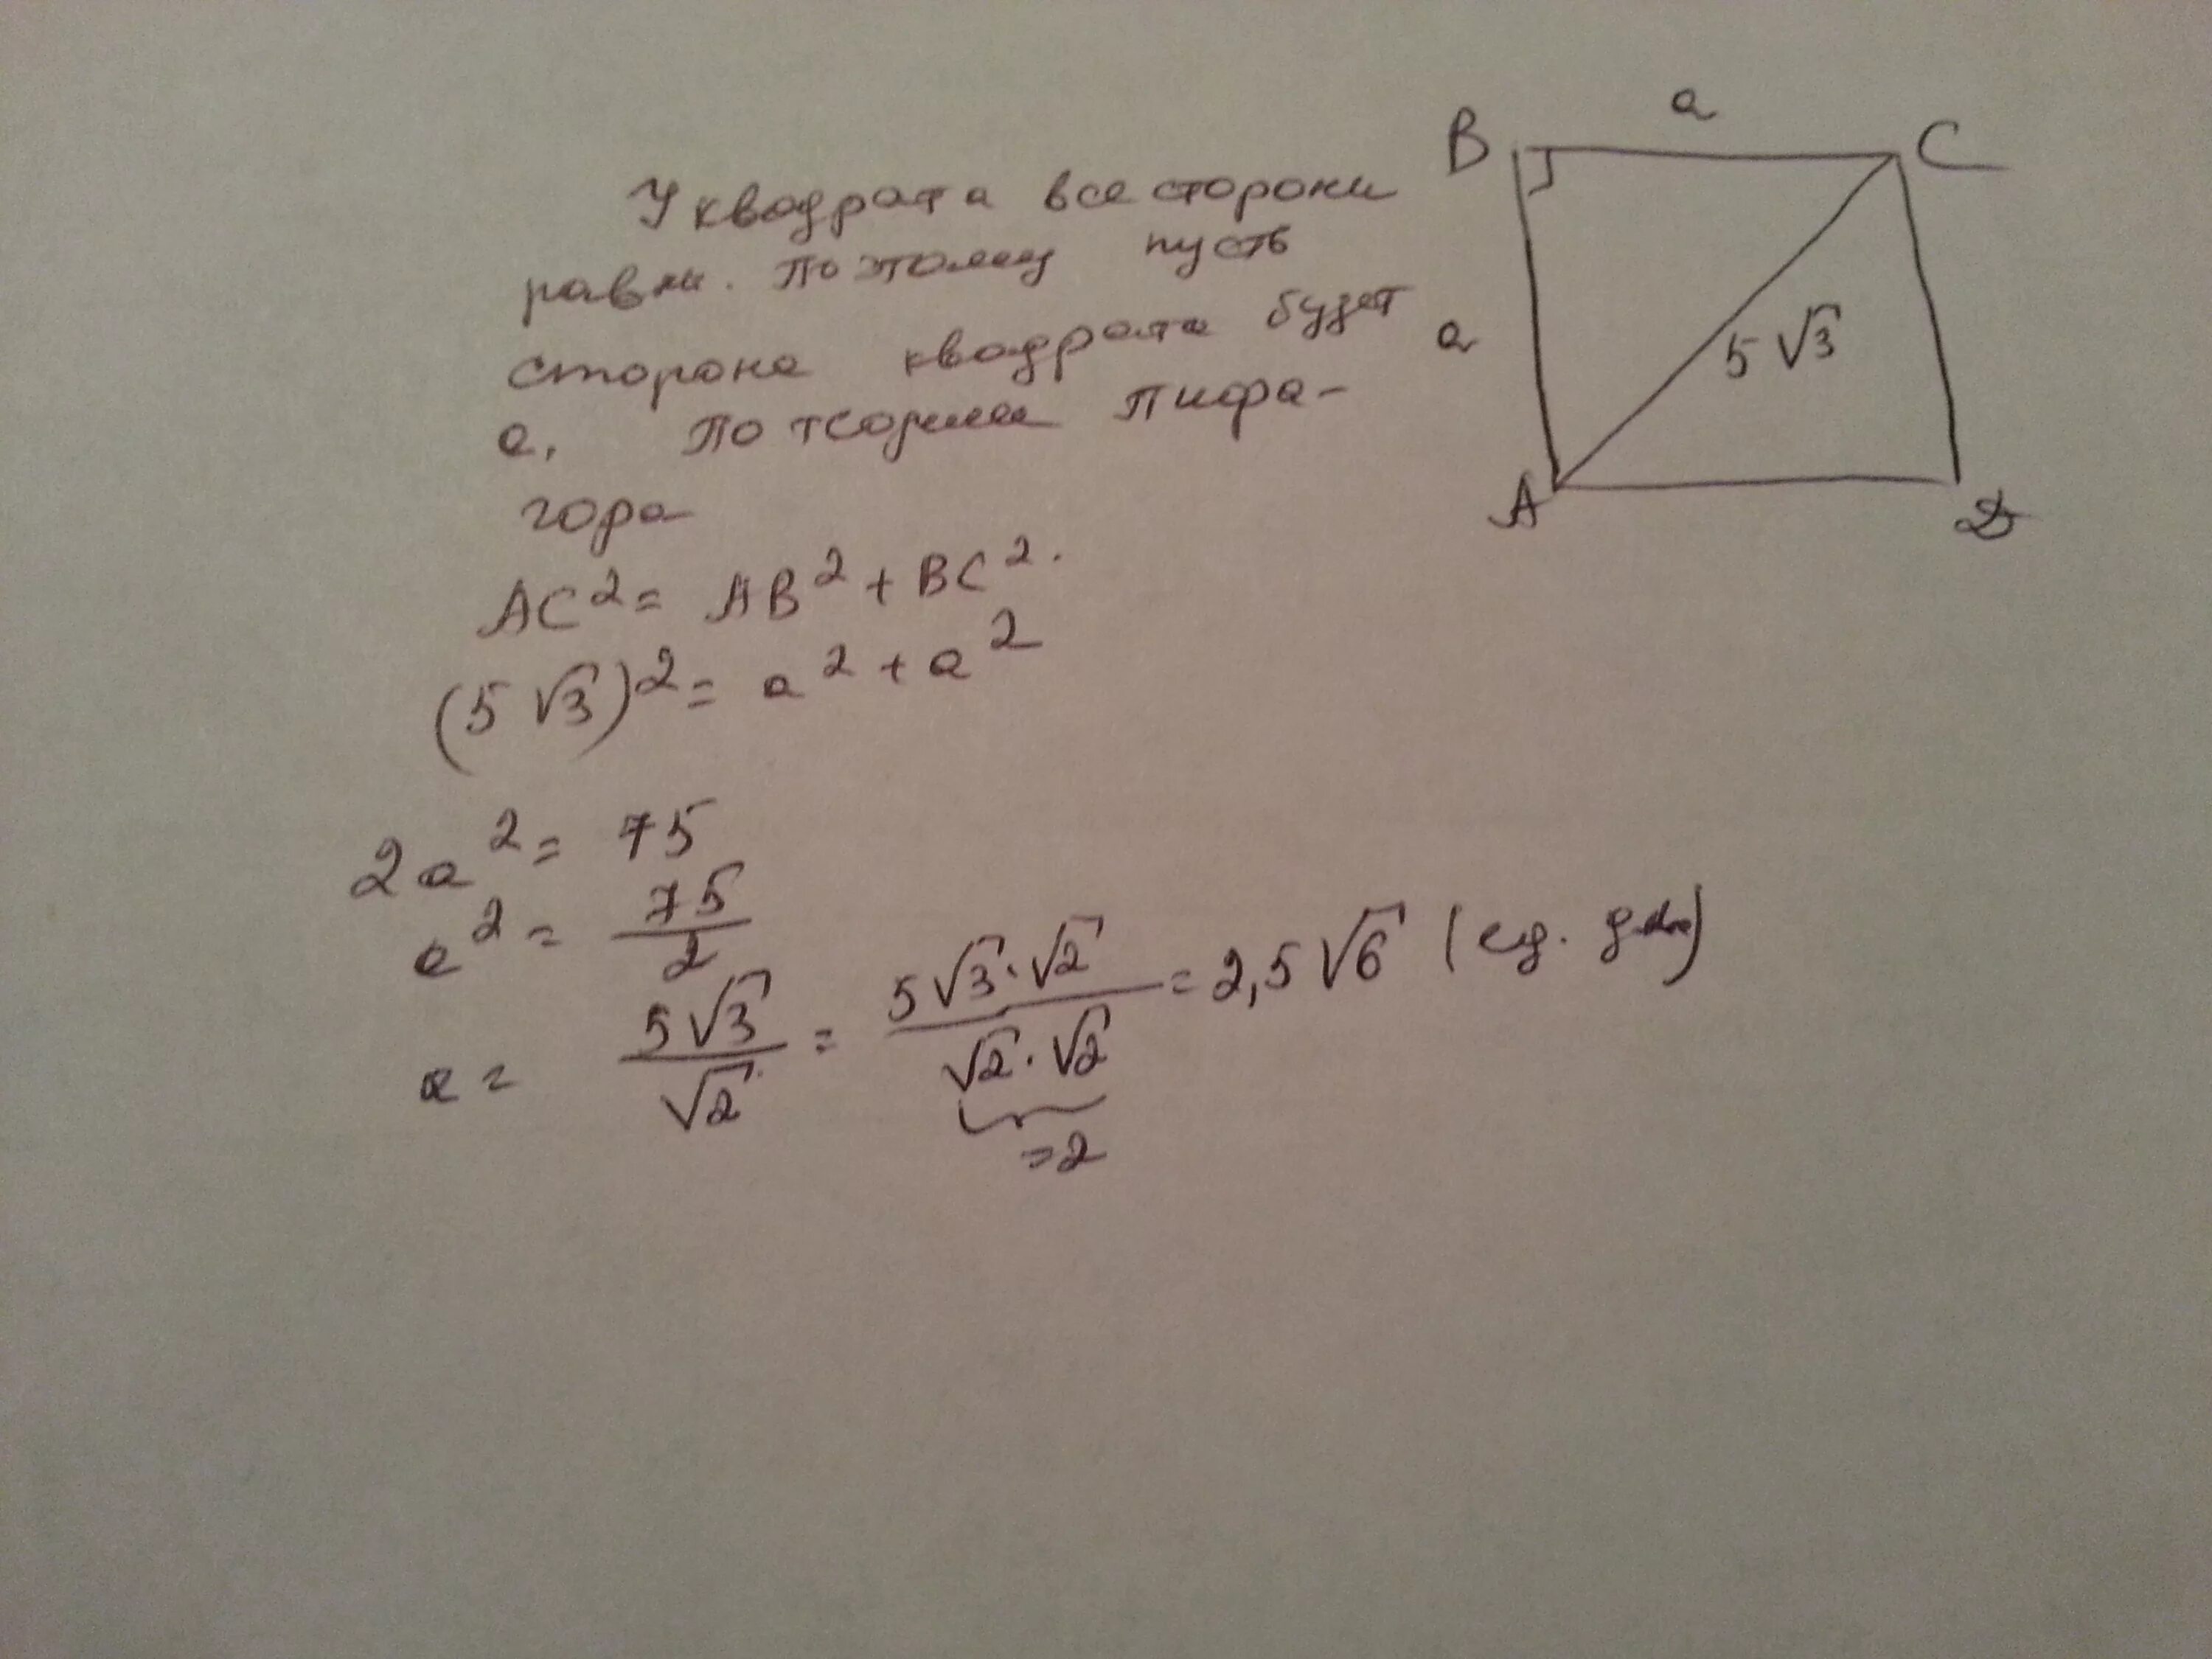 У квадрата все стороны
равны. Поэтому пусть
сторона квадрата будет
a. По теореме Пифа-
гора
AC² = AB² + BC².
(5√3)² = a² + a²
2a² = 75
a² = 75/2
a = 5√3/√2 = 5√3·√2/√2·√2 = 2,5√6 (ед. длины)
=2
B a C
a 5√3
A D